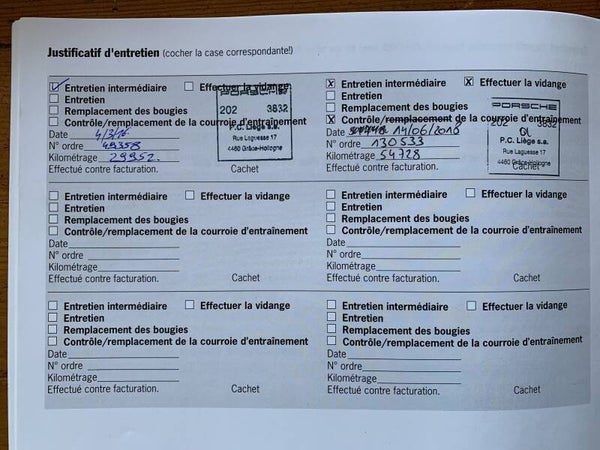 Justificatif d'entretien (cocher la case correspondante!)
Entretien intermédiaire Effectuer la vidange
Entretien
Remplacement des bougies
Contrôle/remplacement de la courroie d'entraînement
Date 4/3/16
N° ordre 49358
Kilométrage 29952.
Effectué contre facturation. Cachet
PORSCHE
202 3832
P.C. Liège s.a.
Rue Laguesse 17
4460 Grâce-Hologne
X Entretien intermédiaire X Effectuer la vidange
Entretien
Remplacement des bougies
X Contrôle/remplacement de la courroie d'entraînement
Date 14/06/2010
N° ordre 130533
Kilométrage 54728
Effectué contre facturation. Cachet
PORSCHE
202 3832
P.C. Liège s.a.
Rue Laguesse 17
4460 Grâce-Hologne
Entretien intermédiaire Effectuer la vidange
Entretien
Remplacement des bougies
Contrôle/remplacement de la courroie d'entraînement
Date
N° ordre
Kilométrage
Effectué contre facturation. Cachet
Entretien intermédiaire Effectuer la vidange
Entretien
Remplacement des bougies
Contrôle/remplacement de la courroie d'entraînement
Date
N° ordre
Kilométrage
Effectué contre facturation. Cachet
Entretien intermédiaire Effectuer la vidange
Entretien
Remplacement des bougies
Contrôle/remplacement de la courroie d'entraînement
Date
N° ordre
Kilométrage
Effectué contre facturation. Cachet
Entretien intermédiaire Effectuer la vidange
Entretien
Remplacement des bougies
Contrôle/remplacement de la courroie d'entraînement
Date
N° ordre
Kilométrage
Effectué contre facturation. Cachet